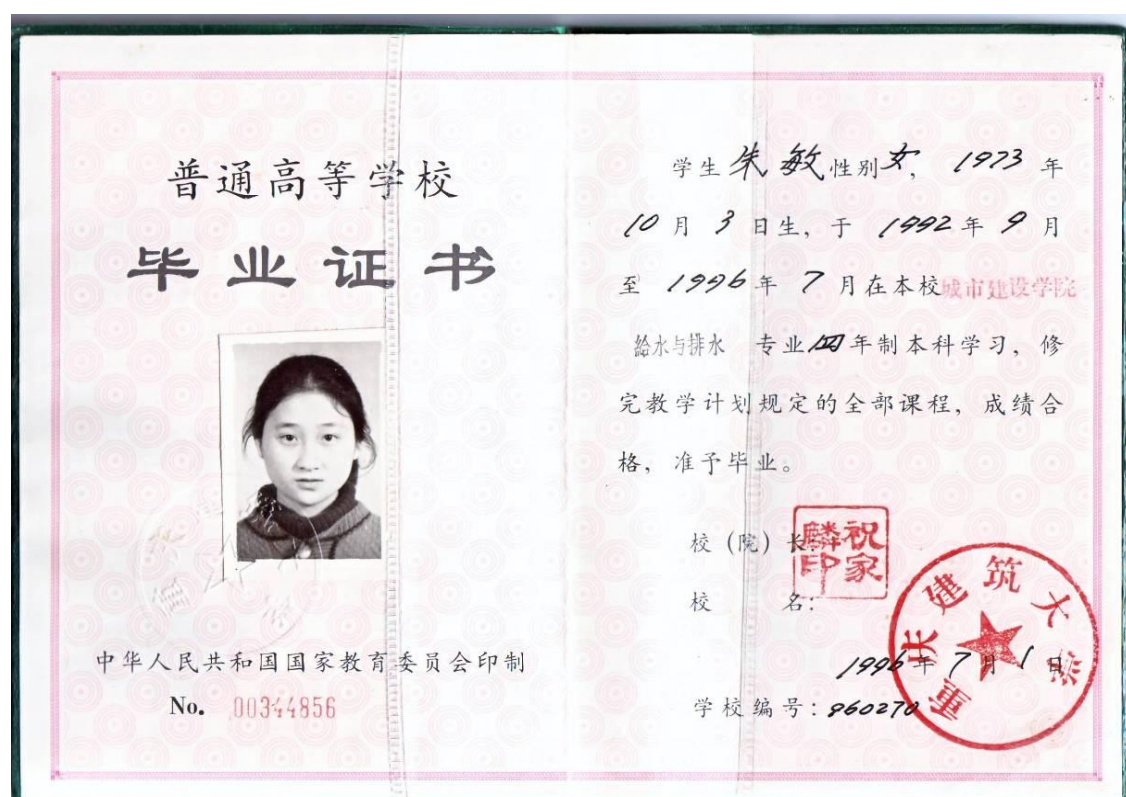 普通高等学校
毕业证书
中华人民共和国国家教育委员会印制
No. 00344856
学生 朱敏 性别 女, 1973 年
10 月 3 日生, 于 1992 年 9 月
至 1996 年 7 月在本校 城市建设学院
給水与排水 专业 四 年制本科学习, 修
完教学计划规定的全部课程, 成绩合
格, 准予毕业。
校 (院) 长:
祝家麟印
校 名:
重庆建筑大学
1996 年 7 月 1 日
学校编号: 960270